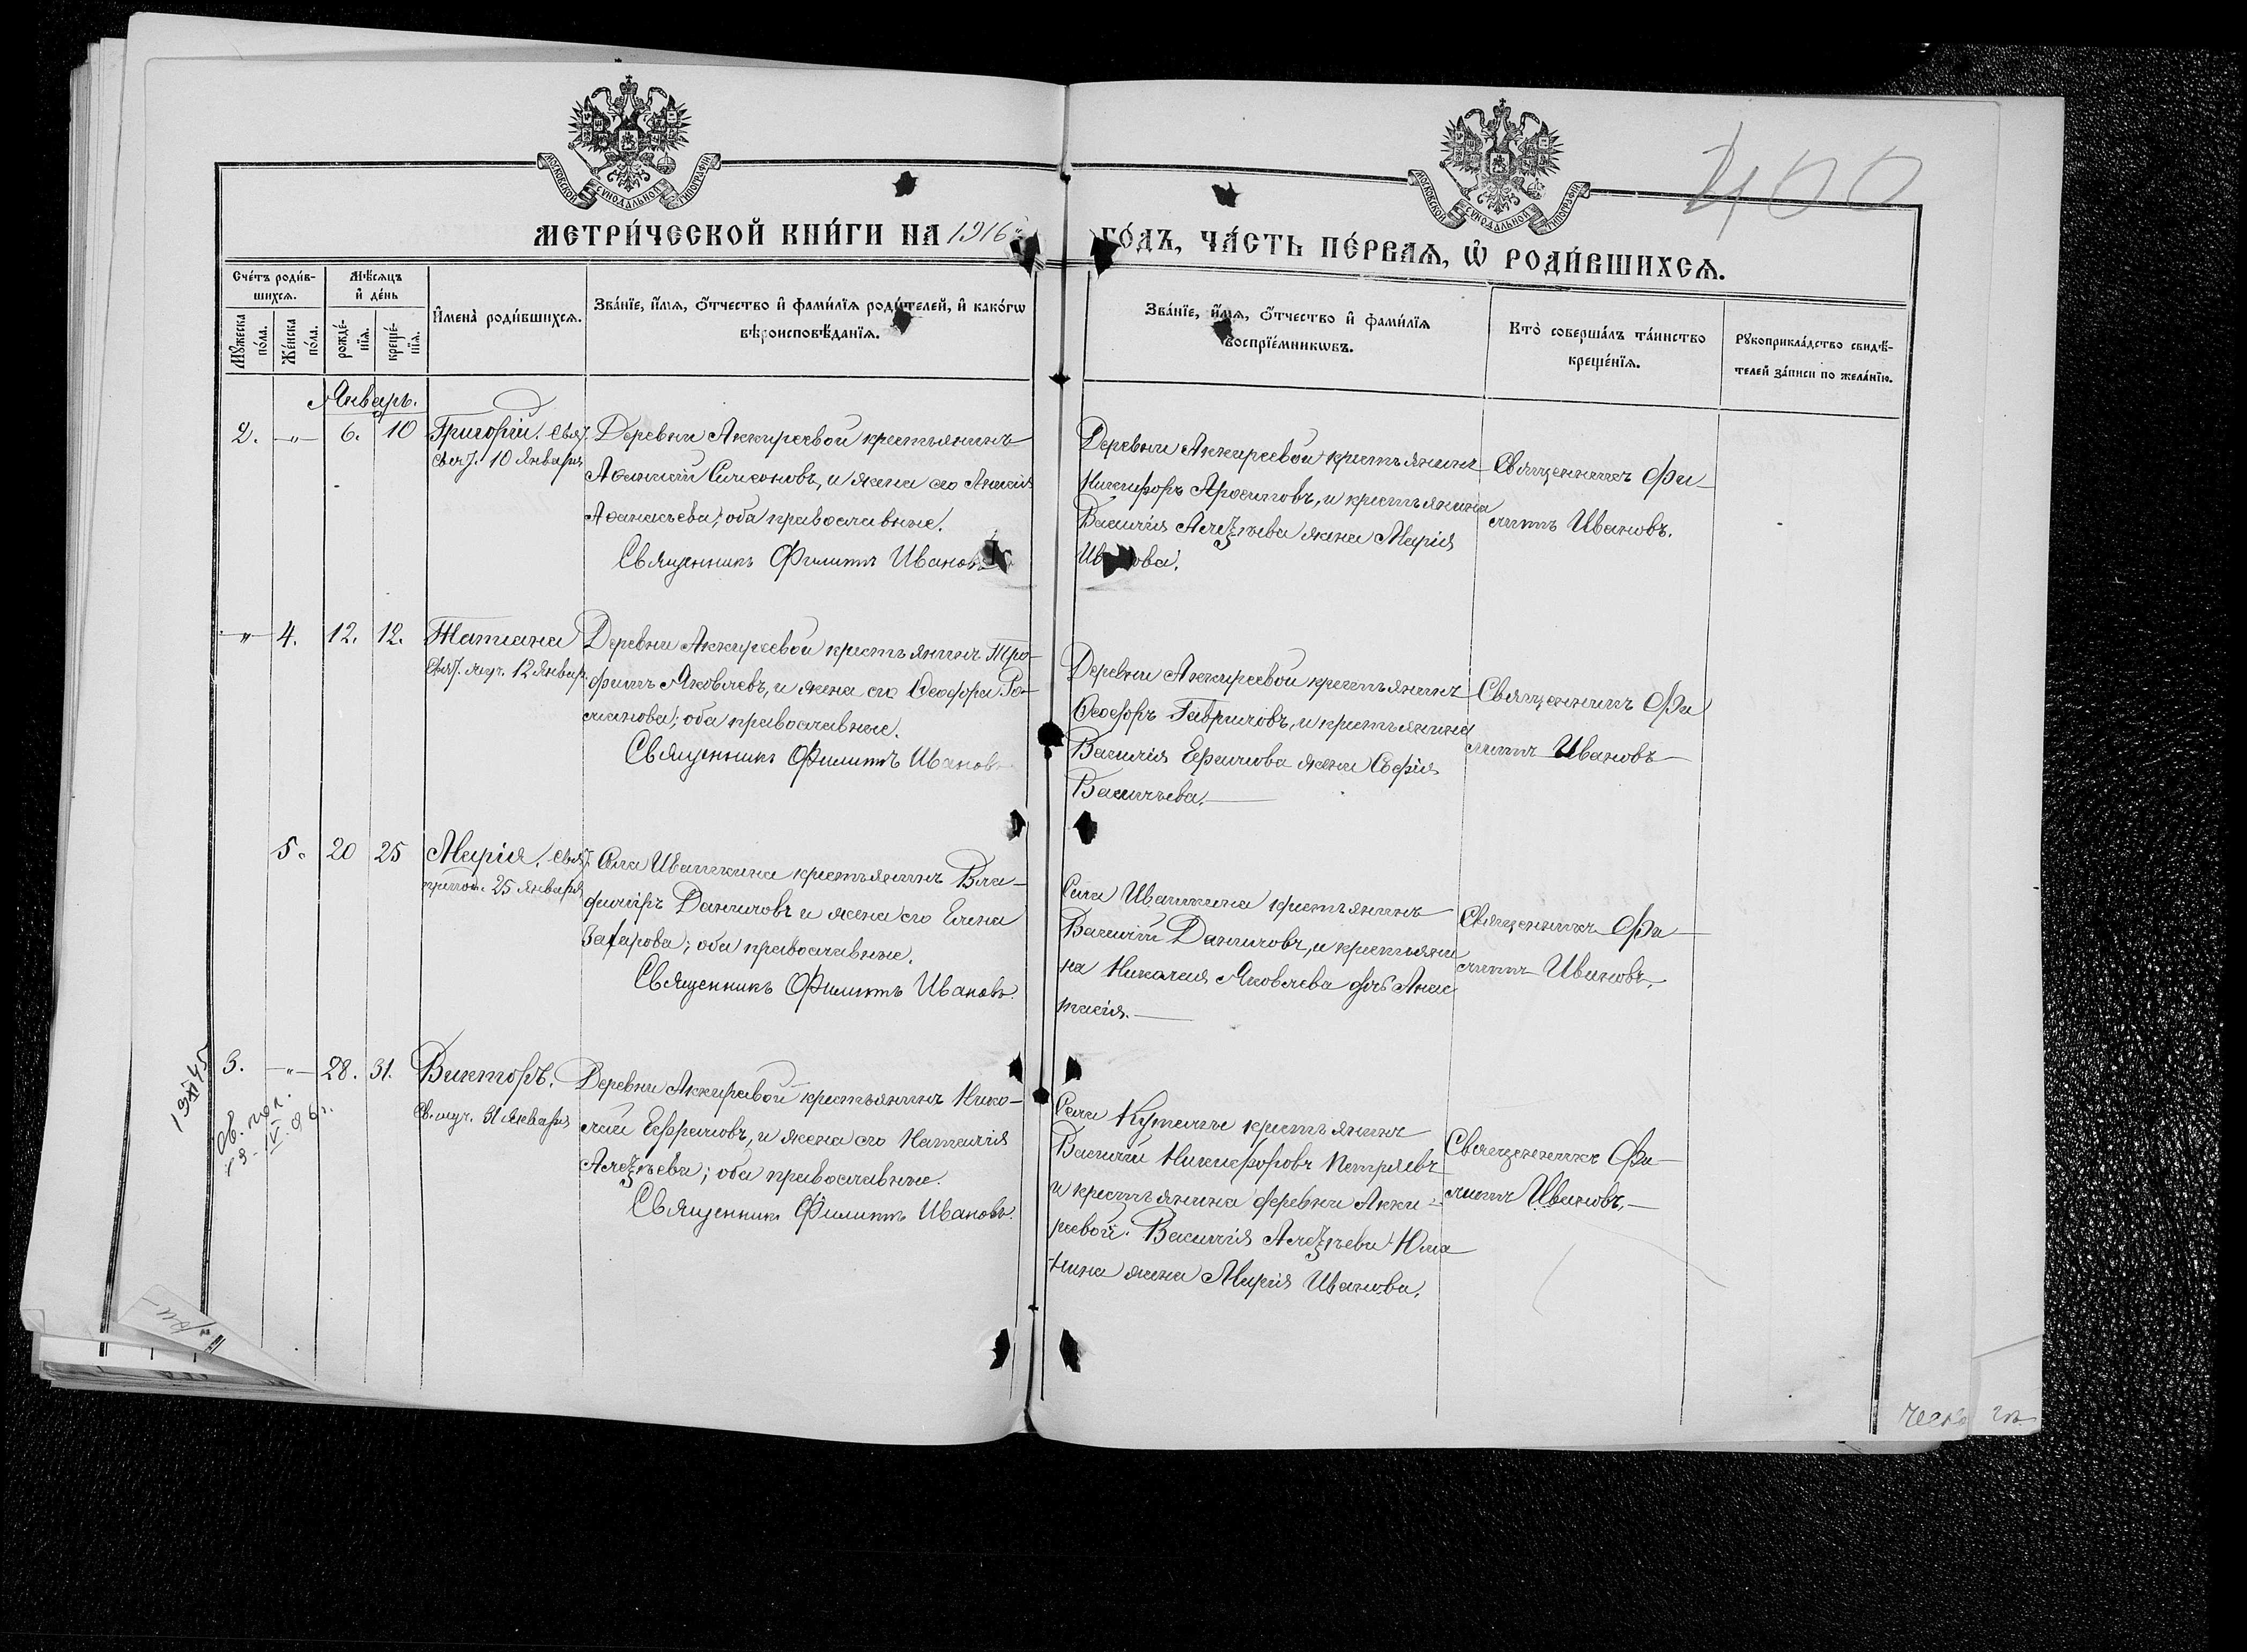 МОСКОВСКОЙ СУНОДАЛЬНОЙ ТИПОГРАФІИ
МОСКОВСКОЙ СУНОДАЛЬНОЙ ТИПОГРАФІИ
400
МЕТРИ́ЧЕСКОЙ КНИ́ГИ НА 1916
ГО́ДЪ, ЧА́СТЬ ПЕ́РВАѦ, Ѡ҆ РОДИ́ВШИХСѦ.
Сче́тъ роди́в-
шихсѧ.
Мꙋ́жеска
по́ла.
Же́нска
по́ла.
Мѣ́сѧцъ
и҆ де́нь
рожде́-
нїѧ.
креще́-
нїѧ.
И҆мена̀ роди́вшихсѧ.
Зва́нїе, и҆́мѧ, ѻ҆́тчество и҆ фами́лїѧ роди́телей, и҆ како́гѡ
вѣроисповѣ́данїѧ.
Зва́нїе, и҆́мѧ, ѻ҆́тчество и҆ фами́лїѧ
воспрїе́мникѡвъ.
Кто̀ соверша́лъ та́инство
креще́нїѧ.
Рꙋкоприкла́дство свидѣ́-
телей за́писи по жела́нїю.
Январь.
2. -"- 6. 10
Григорій. Свят.
Свят. 10 Января
Деревни Аккиреевой крестьянинъ
Симеоновъ, и жена его
Аѳанасьева; оба православные.
Священникъ Филиппъ Ивановъ
Деревни Аккиреевой крестьянинъ
Никифоръ, и крестьянина
Василія Алеѯѣева жена Марія
Иванова.
Священникъ Фи-
липпъ Ивановъ.
-"- 4. 12. 12.
Татіана
Свят. муч. 12 Январ.
Деревни Аккиреевой крестьянинъ Тро-
фимъ Яковлевъ, и жена его Ѳеодора Ро-
манова; оба православные.
Священникъ Филиппъ Ивановъ
Деревни Аккиреевой крестьянинъ
Ѳеодоръ Гавриловъ, и крестьянина
Василія Ефимова жена Софія
Васильева.
Священникъ Фи
липпъ Ивановъ
5. 20 25
Марія. Свят.
препод. 25 Января
Села Ивашкина крестьянинъ Вла-
диміръ Даниловъ и жена его Елена
Захарова; оба православные.
Священникъ Филиппъ Ивановъ.
Села Ивашкина крестьянинъ
Василій Даниловъ, и крестьяни
на Николая Яковлева дчь Анас
тасія.
Священникъ Фи-
липпъ Ивановъ.
3. -"- 28. 31.
Викторъ.
Св. муч. 31 Января
Деревни Аккиреевой крестьянинъ Нико-
лай Ефремовъ, и жена его Наталія
Алеѯѣева; оба православные.
Священникъ Филиппъ Ивановъ.
Села крестьянинъ
Василій Никифоровъ Петряевъ
и крестьянина деревни Акки-
реевой Василія Алеѯѣева Юма
нина жена Марія Иванова.
Священникъ Фи-
липпъ Ивановъ.